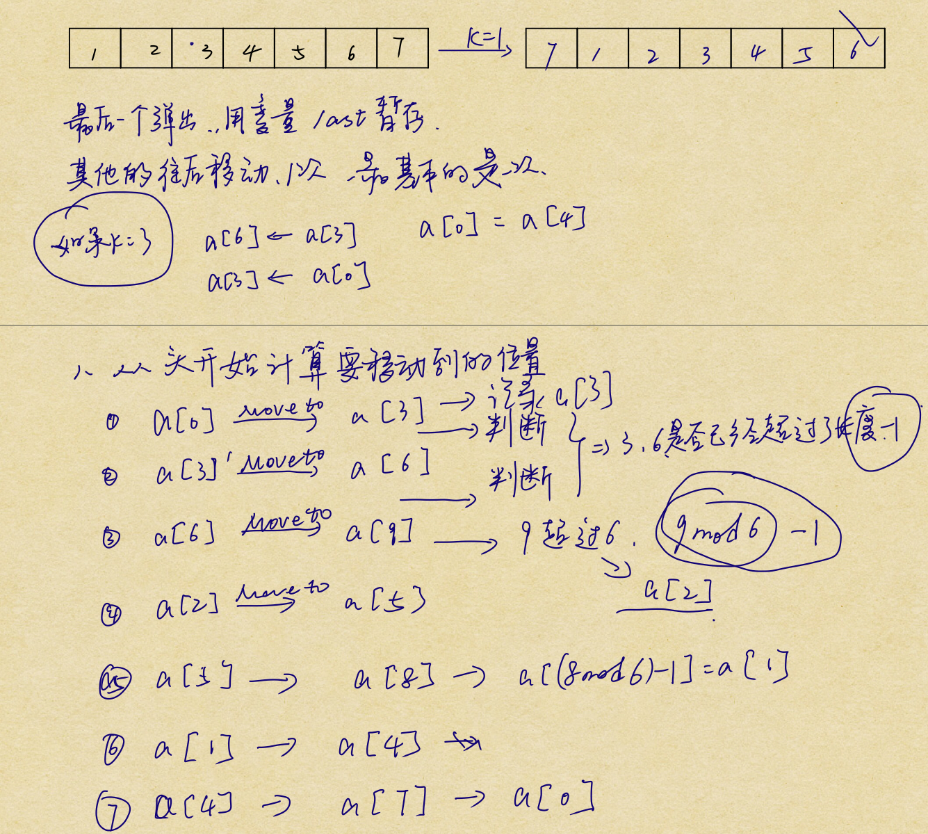 1 2 3 4 5 6 7 K=1 7 1 2 3 4 5 6
最后一个弹出,用变量 last 暂存.
其他的往后移动、1次 最基本的是一次.
如果k=3
a[6] ← a[3] a[0] = a[4]
a[3] ← a[0]
1、从头开始计算要移动到的位置
① a[0] move to a[3] → 记录 a[3]
→ 判断 ⇒ 3、6是否已经超过了长度-1
② a[3] move to a[6]
→ 判断
③ a[6] move to a[9] → 9超过6. 9mod6 -1
a[2]
④ a[2] move to a[5]
⑤ a[5] → a[8] → a[(8mod6)-1]=a[1]
⑥ a[1] → a[4] →
⑦ a[4] → a[7] → a[0]